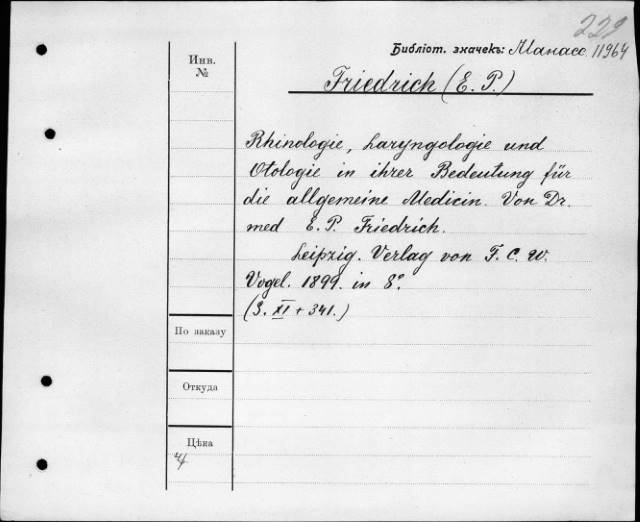 229
Библіот. значекъ: Манасс. 11964
Инв.
№
Friedrich (E. P.)
Rhinologie, Laryngologie und
Otologie in ihrer Bedeutung für
die allgemeine Medicin. Von Dr.
med E. P. Friedrich.
Leipzig. Verlag von F. C. W.
Vogel. 1899. in 8°.
(S. XI + 341.)
По заказу
Откуда
Цѣна